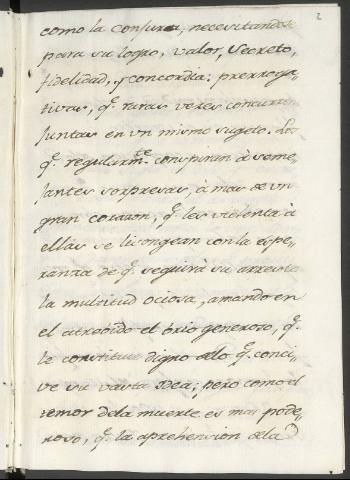 2
como la Conjura, necesitandose
para su logro, valor, Secreto,
fidelidad, y concordia: prerroga-
tivas, q.e raras vezes concurren
Juntas en vn mismo sugeto. Los
q.e regularm.te conspiran à seme-
jantes sorpresas, à mas de vn
gran corazon, q.e les violenta à
ellas se lisongean con la espe-
ranza de q.e seguirà su arresto
la multitud ociosa, amando en
el atrebido el brio generoso, q.e
le constitue digno de lo q.e conci-
ve su vasta Idea; pero como el
temor de la muerte es mas pode-
roso, q.e la aprehension de la